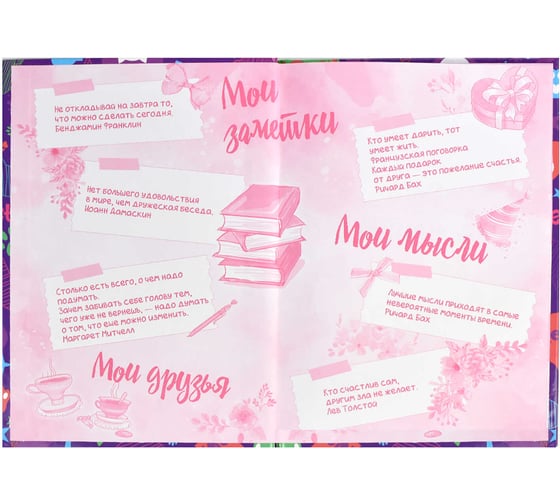 Не откладывай на завтра то,
что можно сделать сегодня.
Бенджамин Франклин
Мои
заметки
Нет большего удовольствия
в мире, чем дружеская беседа.
Иоанн Дамаскин
Столько есть всего, о чем надо
подумать.
Зачем забивать себе голову тем,
чего уже не вернешь, — надо думать
о том, что еще можно изменить.
Маргарет Митчелл
Мои друзья
Кто умеет дарить, тот
умеет жить.
Французская поговорка
Каждый подарок
от друга — это пожелание счастья.
Ричард Бах
Мои мысли
Лучшие мысли приходят в самые
невероятные моменты времени.
Ричард Бах
Кто счастлив сам,
другим зла не желает.
Лев Толстой